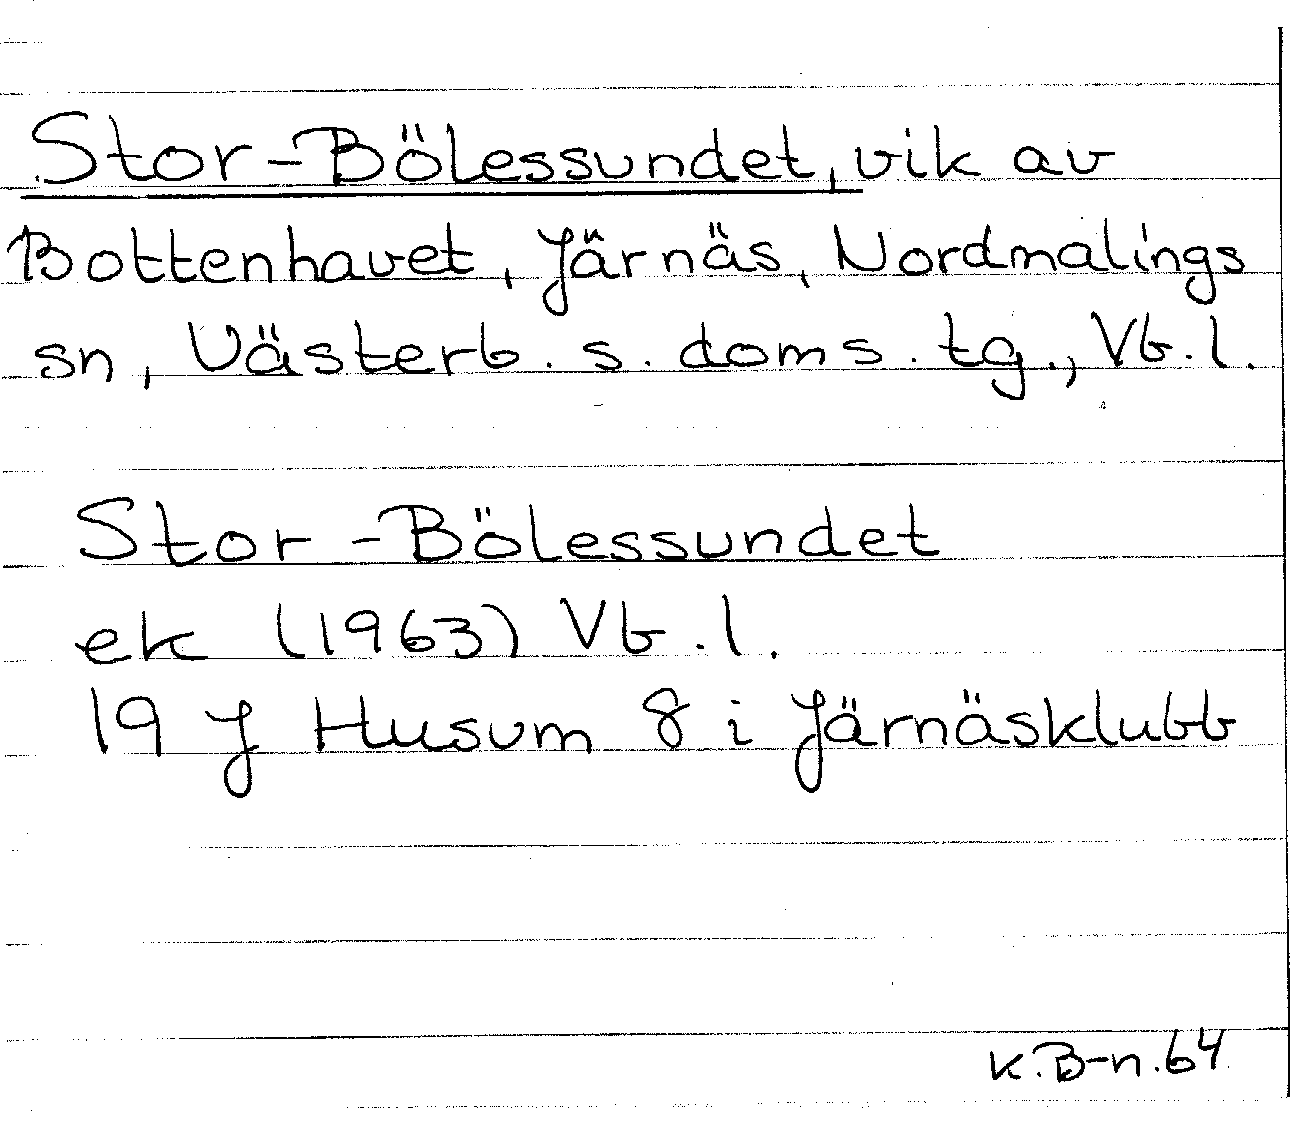 Stor-Bölessundet, vik av
Bottenhavet, Järnäs, Nordmalings
sn, Västerb. s. doms. tg., Vb. l.
Stor-Bölessundet
ek (1963) Vb. l.
19 J Husum 8 i Järnäsklubb
K.B-n.64